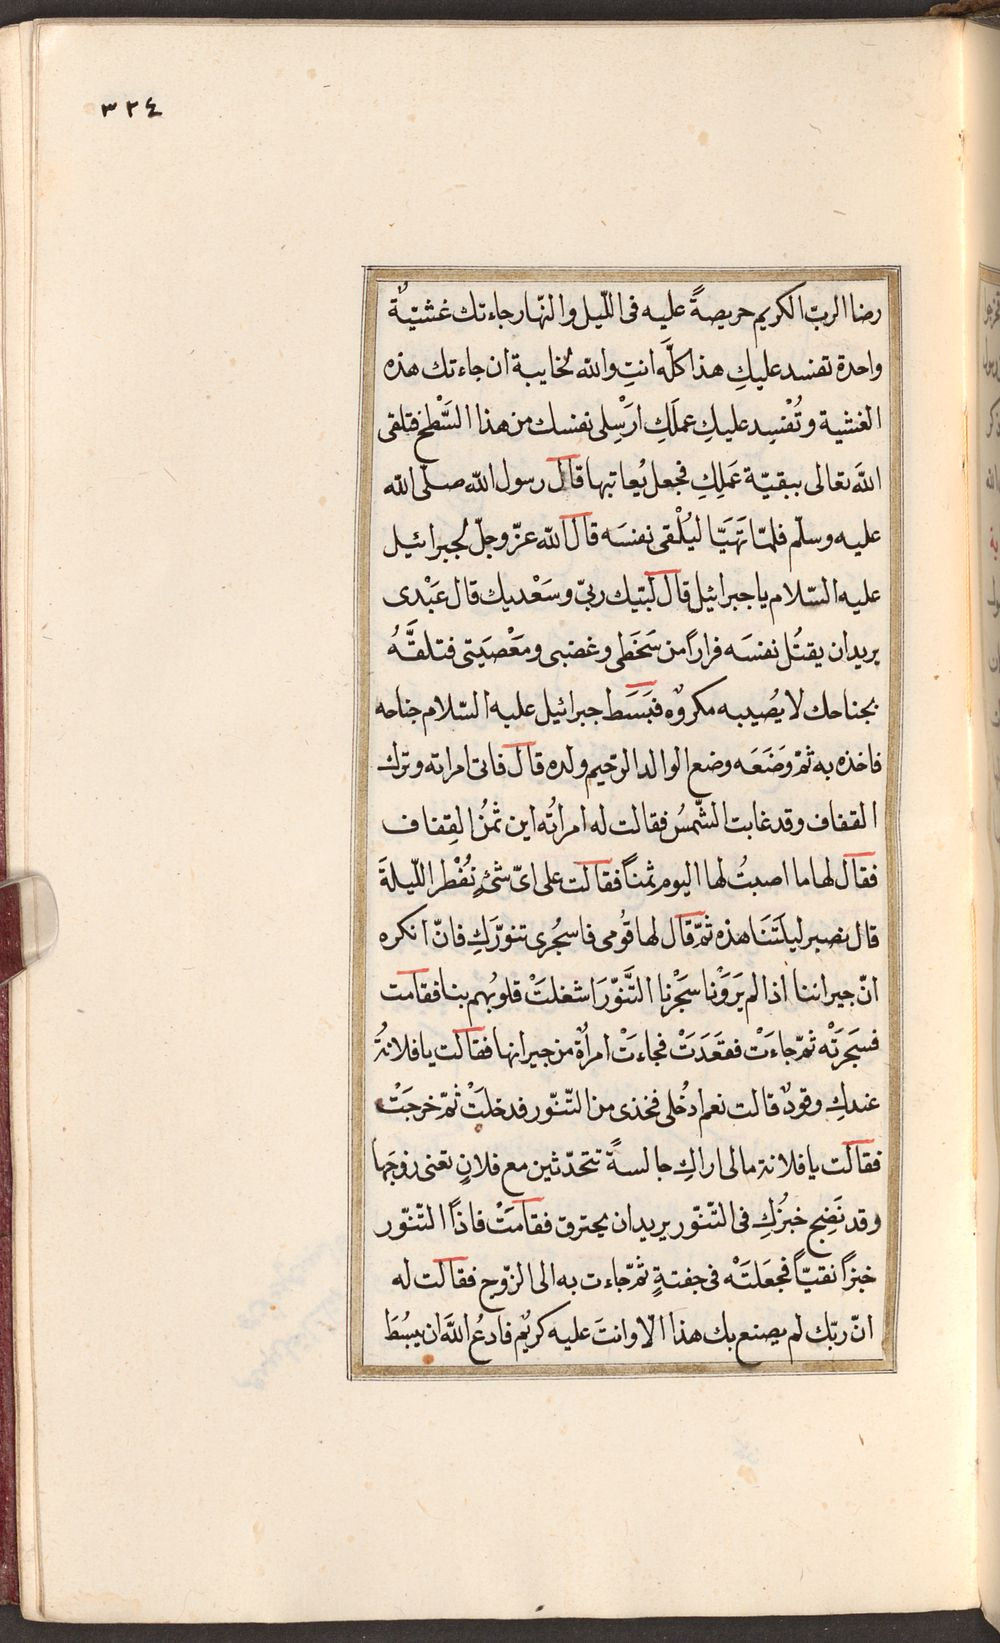 ٣٢٤
رضا الربّ الكريم حريصةً عليه فى اللّيل والنّهار جاءتك غشيّةٌ
واحدة تفسد عليكِ هذا كلَّه انتِ والله لخايبة ان جاءتك هذه
الغشية وتُفْسِد عليكِ عملَكِ ارْسِلى نفسك من هذا السَّطْح فتلقى
اللهَ تعالى ببقيّة عَمَلِكِ فجعل يُعاتبها قال رسول اللّه صلى الله
عليه وسلّم فلمّا تَهَيَّا ليُلْقى نفسَه قال اللّه عزّ وجلّ لجبرائيل
عليه السّلام يا جبرائيل قال لبّيك ربّى وسَعْديك قال عَبْدى
يريد ان يقتُل نفسَه فرارًا من سَخَطى وغضبى ومَعْصيَتى فتلقَّهُ
بجناحك لا يُصيبه مكروه فبَسَط جبرائيل عليه السّلام جناحه
فاخذه به ثمّ وَضَعَه وضع الوالد الرّحيم ولده قال فاتى امراته وترك
القفاف وقد غابت الشّمسُ فقالت له امراتُه اين ثمنُ القِفاف
فقال لها ما اصبتُ لها اليوم ثمنًا فقالت على اىّ شئٍ نُفْطر اللّيلةَ
قال نصبر ليلَتَنَا هذه ثمّ قال لها قُومى فاسجُرى تنورَّكِ فانّا نكره
انّ جيراننا اذا لم يَرَوْنا سَجَرْنا التَّنّورَ اشغلتْ قلوبُهم بنا فقامت
فسَجَرَتْه ثمّ جاءَتْ فقَعَدَتْ فجاءَتْ امراةٌ من جيرانها فقالت يا فلانةُ
عندكِ وقودٌ قالت نعم ادخُلى فخذى من التّنّور فدخلتْ ثمّ خرجَتْ
فقالت يا فلانة مالى اراكِ جالسةً تتحدّثين مع فلانٍ تعنى زوجَها
وقد نَضِج خبزُكِ فى التّنّور يريد ان يحترق فقامَتْ فاذًا التّنّور
خبزًا نقيًّا فجعَلتَْه فى جفتةٍ ثمّ جاءت به الى الزّوج فقالت له
انّ ربّك لم يصنع بك هذا الّا وانتَ عليه كريْم فادعُ اللّهَ ان يبسُطَ